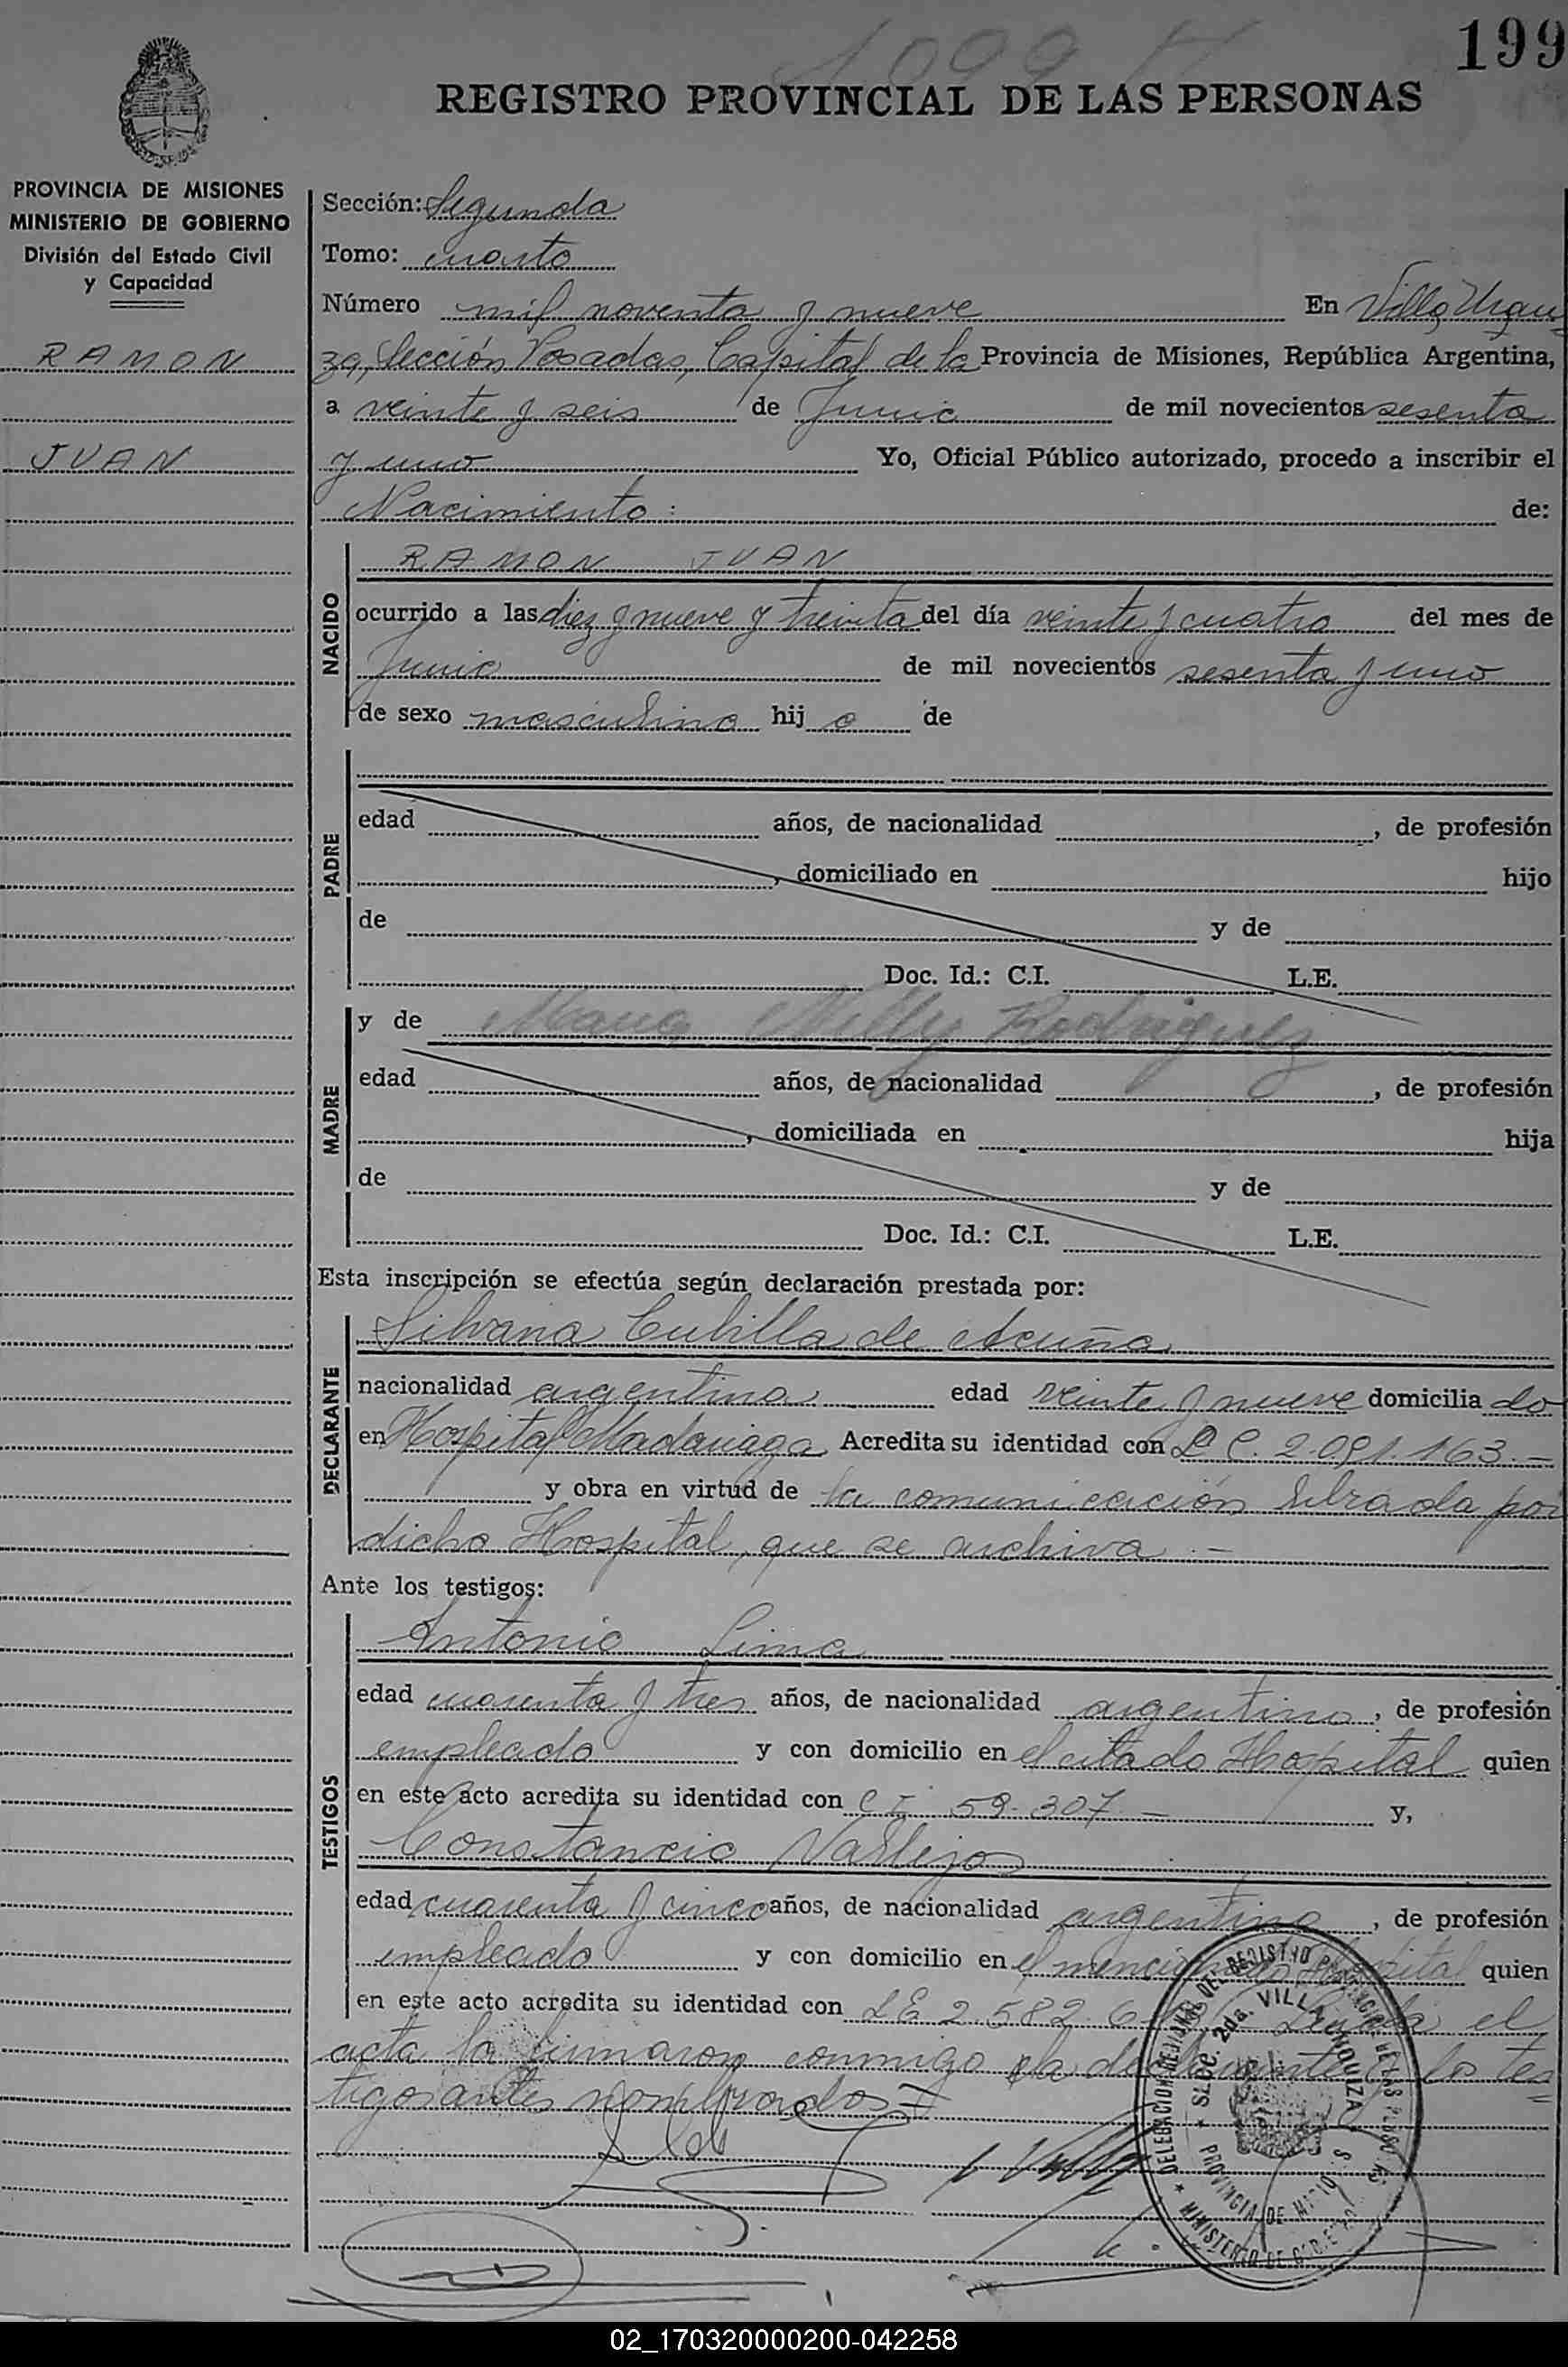 1099
199
REGISTRO PROVINCIAL DE LAS PERSONAS
PROVINCIA DE MISIONES
MINISTERIO DE GOBIERNO
División del Estado Civil
y Capacidad
RAMON
JUAN
Sección: Segunda
Tomo: cuarto
Número mil noventa y nueve En Villa Urqui
za, Sección Posadas, Capital de la Provincia de Misiones, República Argentina,
a veinte y seis de Junio de mil novecientos sesenta
y uno Yo, Oficial Público autorizado, procedo a inscribir el
Nacimiento: de:
NACIDO
RAMON JUAN
ocurrido a las diez y nueve y treinta del día veinte y cuatro del mes de
Junio de mil novecientos sesenta y uno
de sexo masculino hijo de
PADRE
edad años, de nacionalidad , de profesión
, domiciliado en hijo
de y de
Doc. Id.: C.I. L.E.
MADRE
y de Maria Nelly Rodriguez
edad años, de nacionalidad , de profesión
, domiciliada en hija
de y de
Doc. Id.: C.I. L.E.
Esta inscripción se efectúa según declaración prestada por:
DECLARANTE
Silvana Cubilla de Acuña
nacionalidad argentina edad veinte y nueve domicilia do
en Hospital Madariaga Acredita su identidad con L.C. 2.091.163.-
y obra en virtud de la comunicación librada por
dicho Hospital, que se archiva.-
Ante los testigos:
TESTIGOS
Antonio Lima
edad cuarenta y tres años, de nacionalidad argentino, de profesión
empleado y con domicilio en el citado Hospital quien
en este acto acredita su identidad con C I 59.307.- y,
Constancio Vallejos
edad cuarenta y cinco años, de nacionalidad argentino, de profesión
empleado y con domicilio en el mencionado Hospital quien
en este acto acredita su identidad con L E 2.582. Leida el
acta la firmaron conmigo la declarante y los tes=
tigos antes nombrados=
DELEGACION REGIONAL DEL REGISTRO PROVINCIAL DE LAS PERSONAS
SECC. 2da. VILLA URQUIZA
PROVINCIA DE MISIONES
MINISTERIO DE GOBIERNO
02_170320000200-042258